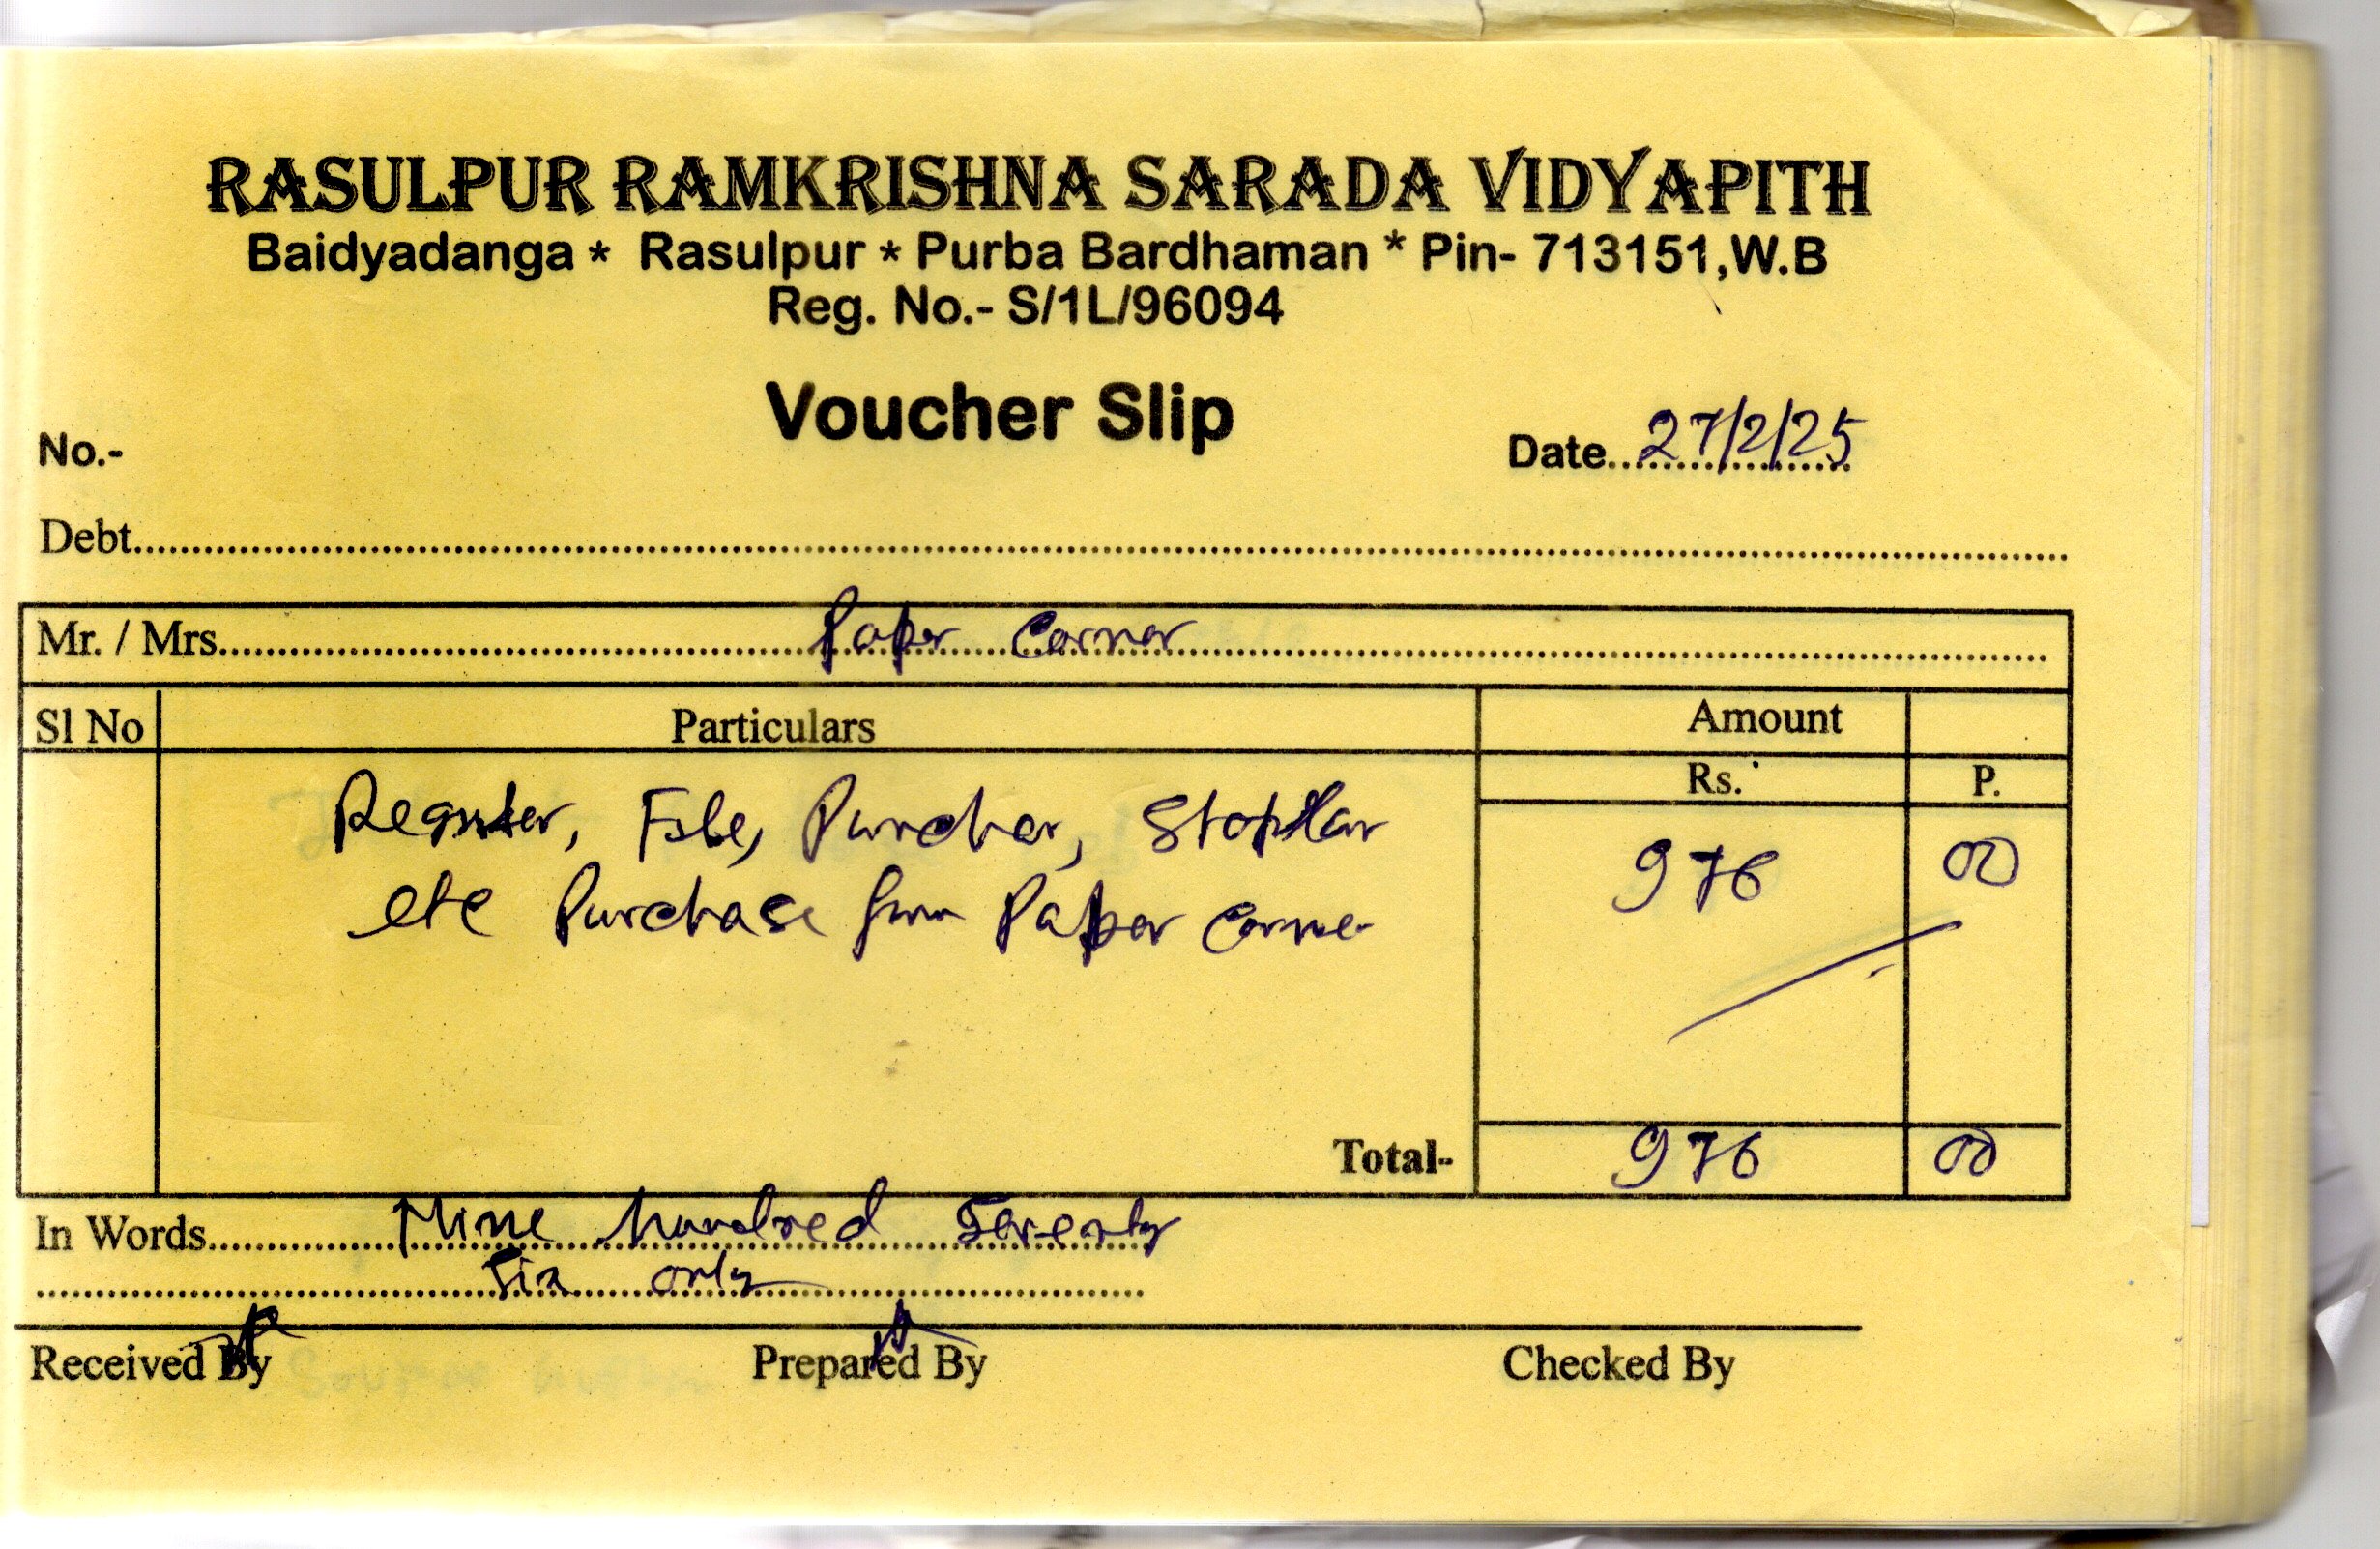 RASULPUR RAMKRISHNA SARADA VIDYAPITH
Baidyadanga * Rasulpur * Purba Bardhaman * Pin- 713151,W.B
Reg. No.- S/1L/96094
Voucher Slip
No.- Date 27/2/25
Debt
Mr. / Mrs. Paper Corner
Sl No Particulars Amount
Rs. P.
Register, File, Purcher, 976 00
etc Purchase from Paper Corner
Total- 976 00
In Words Nine hundred Seventy
Six only
Received By Prepared By Checked By